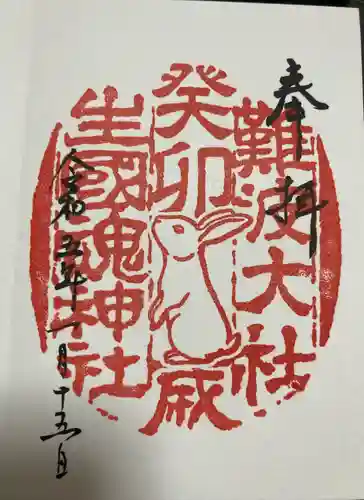 奉拝
難波大社
癸卯歳
生國魂神社
令和五年十一月十五日